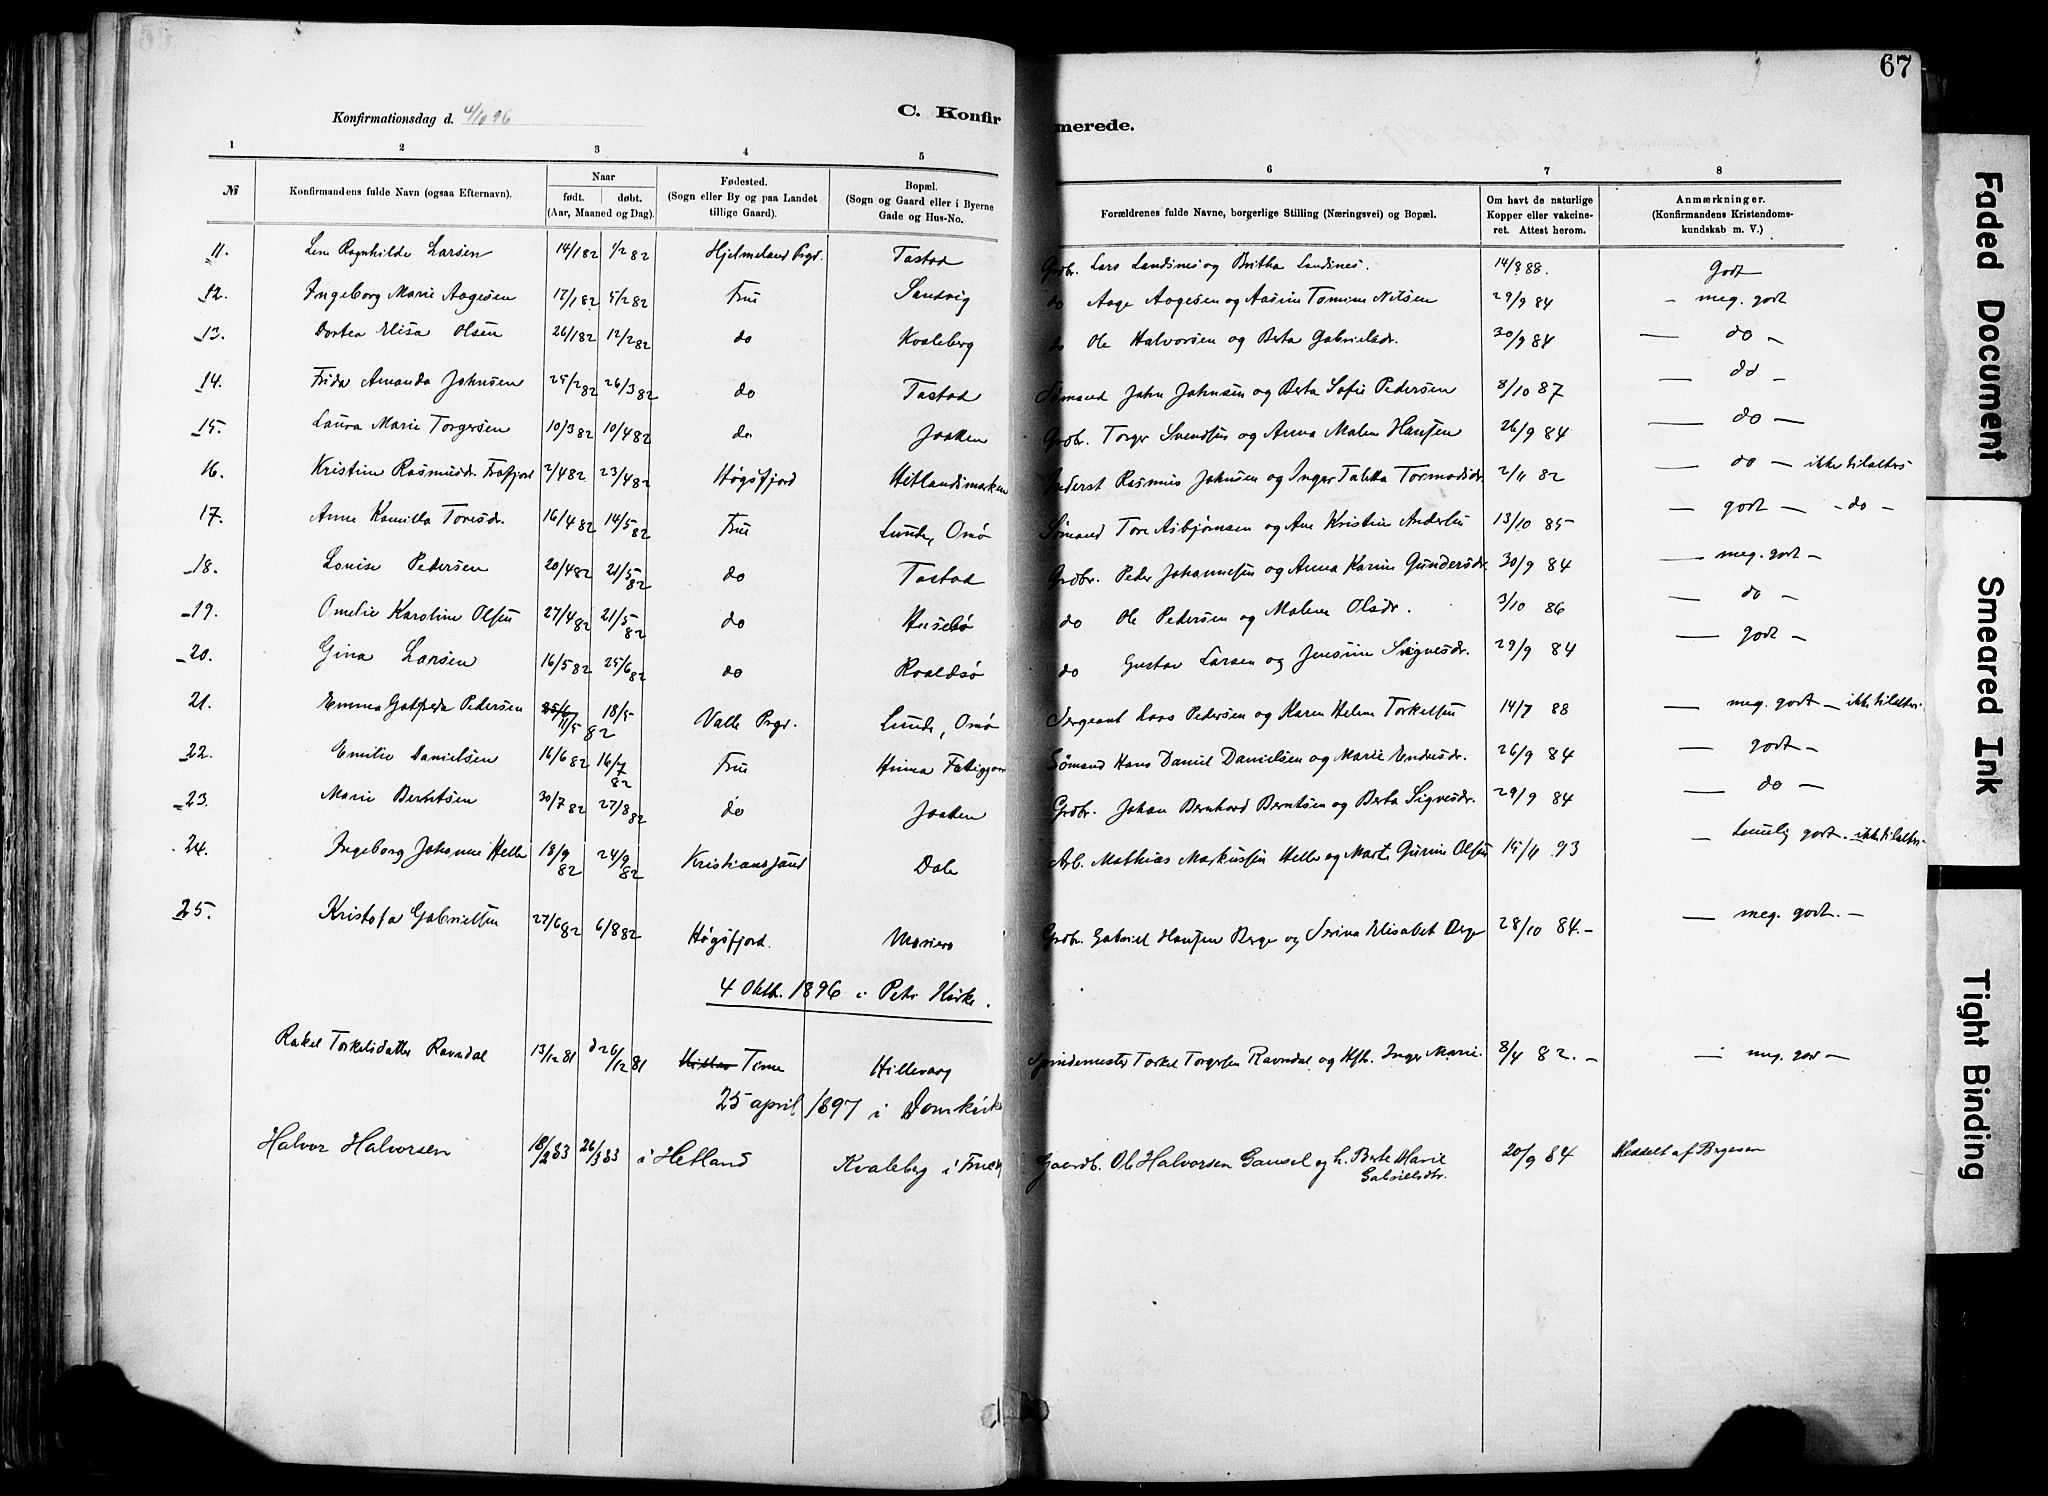 67
Konfirmationsdag d. 4/10 96
C. Konfirmerede.
1 2 3 4 5 6 7 8
№ Konfirmandens fulde Navn (ogsaa Efternavn). Naar født. døbt. (Aar, Maaned og Dag). Fødested. (Sogn eller By og paa Landet tillige Gaard). Bopæl. (Sogn og Gaard eller i Byerne Gade og Hus-No. Forældrenes fulde Navne, borgerlige Stilling (Næringsvei) og Bopæl. Om havt de naturlige Kopper eller vakcineret. Attest herom. Anmærkninger. (Konfirmandens Kristendomskundskab m. V.)
11. Lene Ragnhilde Larsen 14/1 82 1/2 82 Hjelmeland Prgd. Tastad Grdbr. Lars Landsnes og Britha Landsnes. 14/8 88. Godt
12. Ingeborg Marie Aagesen 17/1 82 5/2 82 Frue Sandvig do Aage Aagesen og Aasine Tomine Nilsen 29/9 84 - meg. godt
13. Dortea Elisa Olsen 26/1 82 12/2 82 do Kvaleberg do Ole Halvorsen og Berta Gabrielsdr. 30/9 84 — do -
14. Frida Amanda Johnsen 25/2 82 26/3 82 do Tastad Sømand John Johnsen og Berta Sofie Pedersen 8/10 87 — do -
15. Laura Marie Torgersen 10/3 82 10/4 82 do Jaatten Grdbr. Torger Svendsen og Anna Malene Hansen 26/9 84 — do —
16. Kristine Rasmusdr. Frafjord 2/4 82 23/4 82 Høgsfjord Hetlandsmarken Inderst Rasmus Johnsen og Inger Tabitta Tormodsdr. 2/11 82 — do — ikke tilalters
17. Anne Kamilla Toresdr. 16/4 82 14/5 82 Frue Lunde, Omø Sømand Tore Asbjørnsen og Ane Kristine Andersen 13/10 85 - godt - - do -
18. Louise Pedersen 20/4 82 21/5 82 do Tastad Grdbr. Peder Johannesen og Anna Karine Gundersdr. 30/9 84 — meg. godt -
19. Omelie Karoline Olsen 27/4 82 21/5 82 do Husebø do Ole Pedersen og Malene Olsdr. 3/10 86 — do -
20. Gina Larsen 16/5 82 25/6 82 do Roaldsø do Gustav Larsen og Jensine Sigvesdr. 29/9 84 — godt -
21. Emma Gatfreda Pedersen 25/6 11/5 82 18/5 Valle Prgd. Lunde, Omø Sergeant Lars Pedersen og Karen Helene Torkelsen 14/7 88 — meg. godt - ikke tilalters
22. Emilie Danielsen 16/6 82 16/7 82 Frue Hinna Sømand Hans Daniel Danielsen og Marie Endresdr. 26/9 84 — godt -
23. Marie Berntsen 30/7 82 27/8 82 do Jaatten Grdbr. Johan Bernhard Berntsen og Berta Sigvesdr. 29/9 84 — do —
24. Ingeborg Johanne Helle 18/9 82 24/9 82 Kristianssand Dale Arb. Mathias Markussen Helle og Marte Gurine Olsen 15/11 93 — temmelig godt - ikke tilalters
25. Kristofa Gabrielsen 27/6 82 6/8 82 Høgsfjord. Mariero Grdbr. Gabriel Hansen Berge og Serina Elisabet Berge 28/10 84. - — meg. godt. -
4 Oktb. 1896 i Petri Kirke.
Rakel Torkelsdatter Ravndal 13/12 81 d 26/12 81 Time Hillevaag Spindemester Torkel Torgersen Ravndal og Hst. Inger Marie. 8/4 82. - — meg. godt —
25 april 1897 i Domkirk
Halvor Halvorsen 18/2 83 26/3 83 i Hetland Kvaleberg i Frue Gaardb. Ole Halvorsen Gausel og h. Berte Marie Gabrielsdtr. 20/9 84 Meddelt af Børgesen
Faded Document
Smeared Ink
Tight Binding